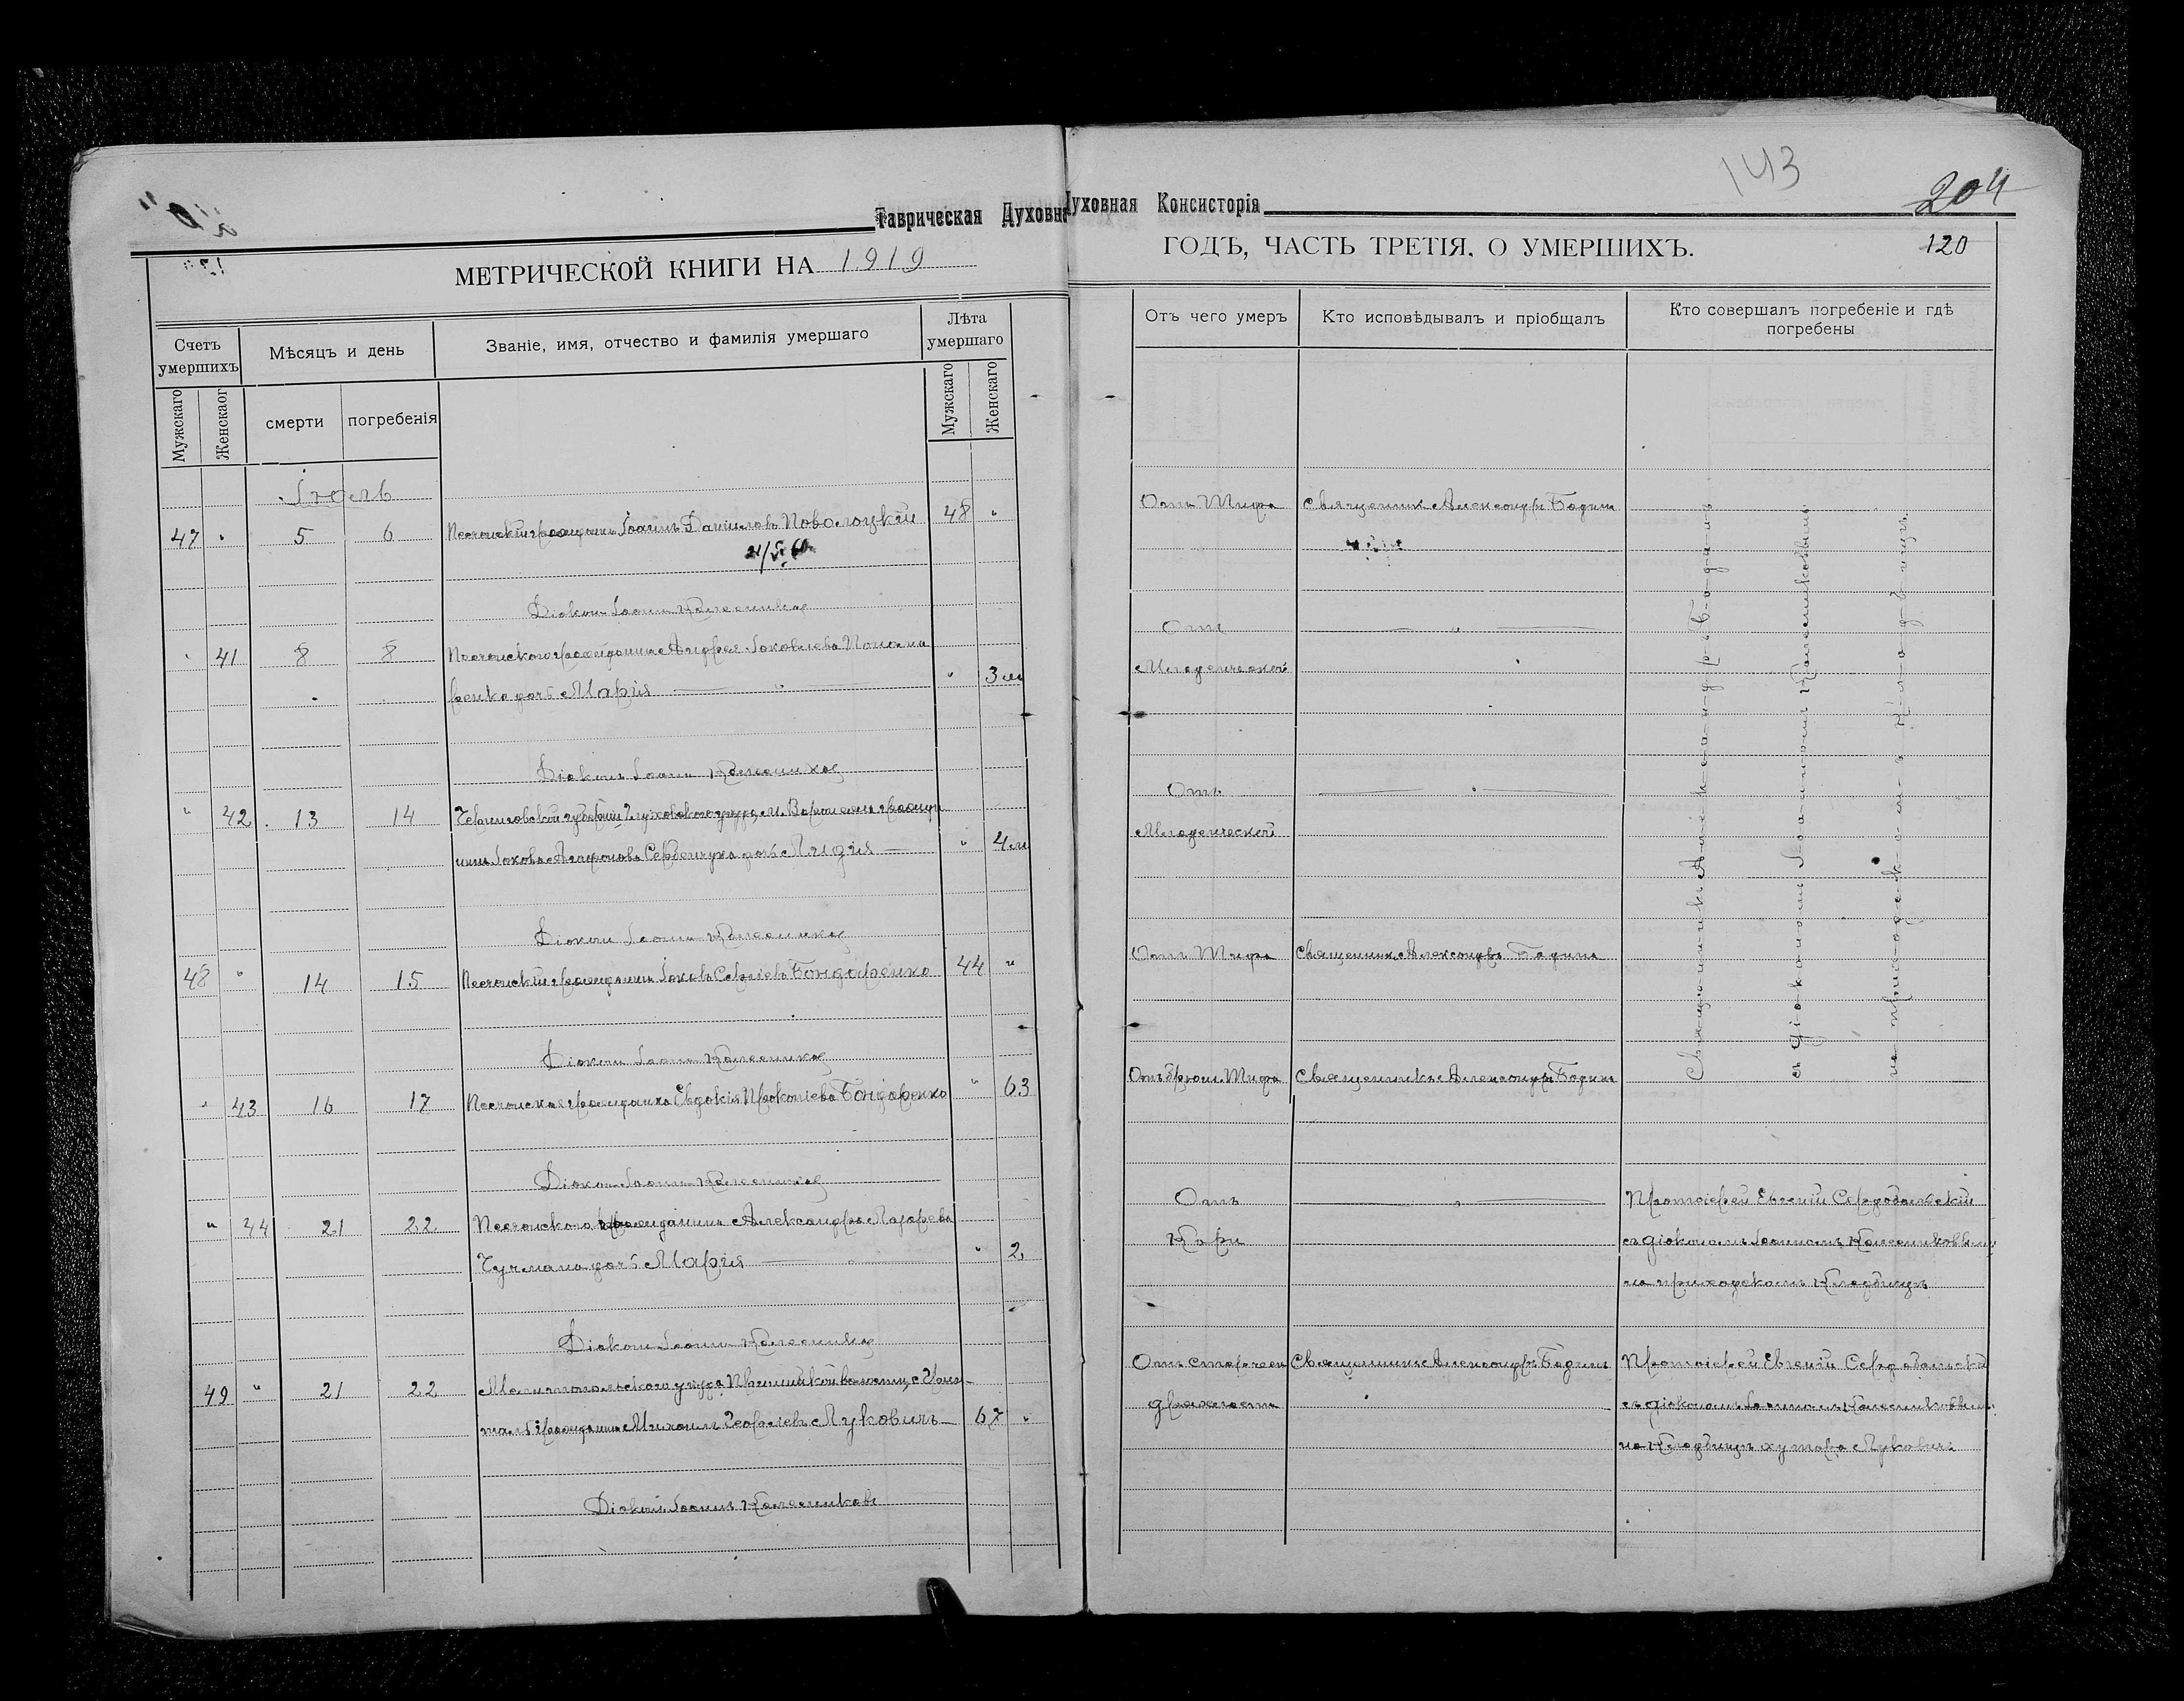 Таврическая Духовн
Духовная Консисторія
143
204
МЕТРИЧЕСКОЙ КНИГИ НА 1919
ГОДЪ, ЧАСТЬ ТРЕТІЯ. О УМЕРШИХЪ.
120
Счетъ умершихъ
Мѣсяцъ и день
Званіе, имя, отчество и фамилія умершаго
Лѣта умершаго
Мужскаго
Женскаог
смерти
погребенія
Мужскаго
Женскаго
Отъ чего умеръ
Кто исповѣдывалъ и пріобщалъ
Кто совершалъ погребеніе и гдѣ
погребены
Іюль
47 " 5 6 гражданинъ Іоаннъ Даніиловъ Поволоцкій 48 "
Отъ Тифа Священникъ Александръ Бодинъ
Діаконъ Іоаннъ Колесниковъ
" 41 8 8 гражданина Андрея Іаковлева Понома
ренко дочь Марія " " 3 м
Отъ "
Младенческой
Діаконъ Іоаннъ Колесниковъ
" 42 13 14 Черниговской губерніи, Глуховскаго уѣзда, м. Воронежа гражда
нина Іакова дочь Лидія " 4 м
Отъ "
Младенческой
Діаконъ Іоаннъ Колесниковъ
48 " 14 15 гражданинъ Іаковъ Сергіевъ Бондаренко 44 "
Отъ Тифа Священникъ Александръ Бодинъ
Діаконъ Іоаннъ Колесниковъ
" 43 16 17 гражданка Евдокія Прокопіева Бондаренко " 63
Отъ Брюш. Тифа Священникъ Александръ Бодинъ
Священникъ Александръ Бодинъ
съ діакономъ Іоанномъ Колесниковымъ
на приходскомъ кладбищѣ
Діаконъ Іоаннъ Колесниковъ
" 44 21 22 гражданина Александра Лазарева
Чумака дочь Марія " " 2
Отъ "
Кори
Протоіерей Евгеній Сердобольскій
съ діакономъ Іоанномъ Колесниковымъ
на приходскомъ кладбищѣ
Діаконъ Іоаннъ Колесниковъ
49 " 21 22 Мелитопольскаго уѣзда, волости, с.
гражданинъ Михаилъ Георгіевъ Луковичъ 67 "
Отъ старческ Священникъ Александръ Бодинъ
дряхлости
Протоіерей Евгеній Сердобольскій
съ діакономъ Іоанномъ Колесниковымъ
на кладбищѣ хутора Луковича
Діаконъ Іоаннъ Колесниковъ